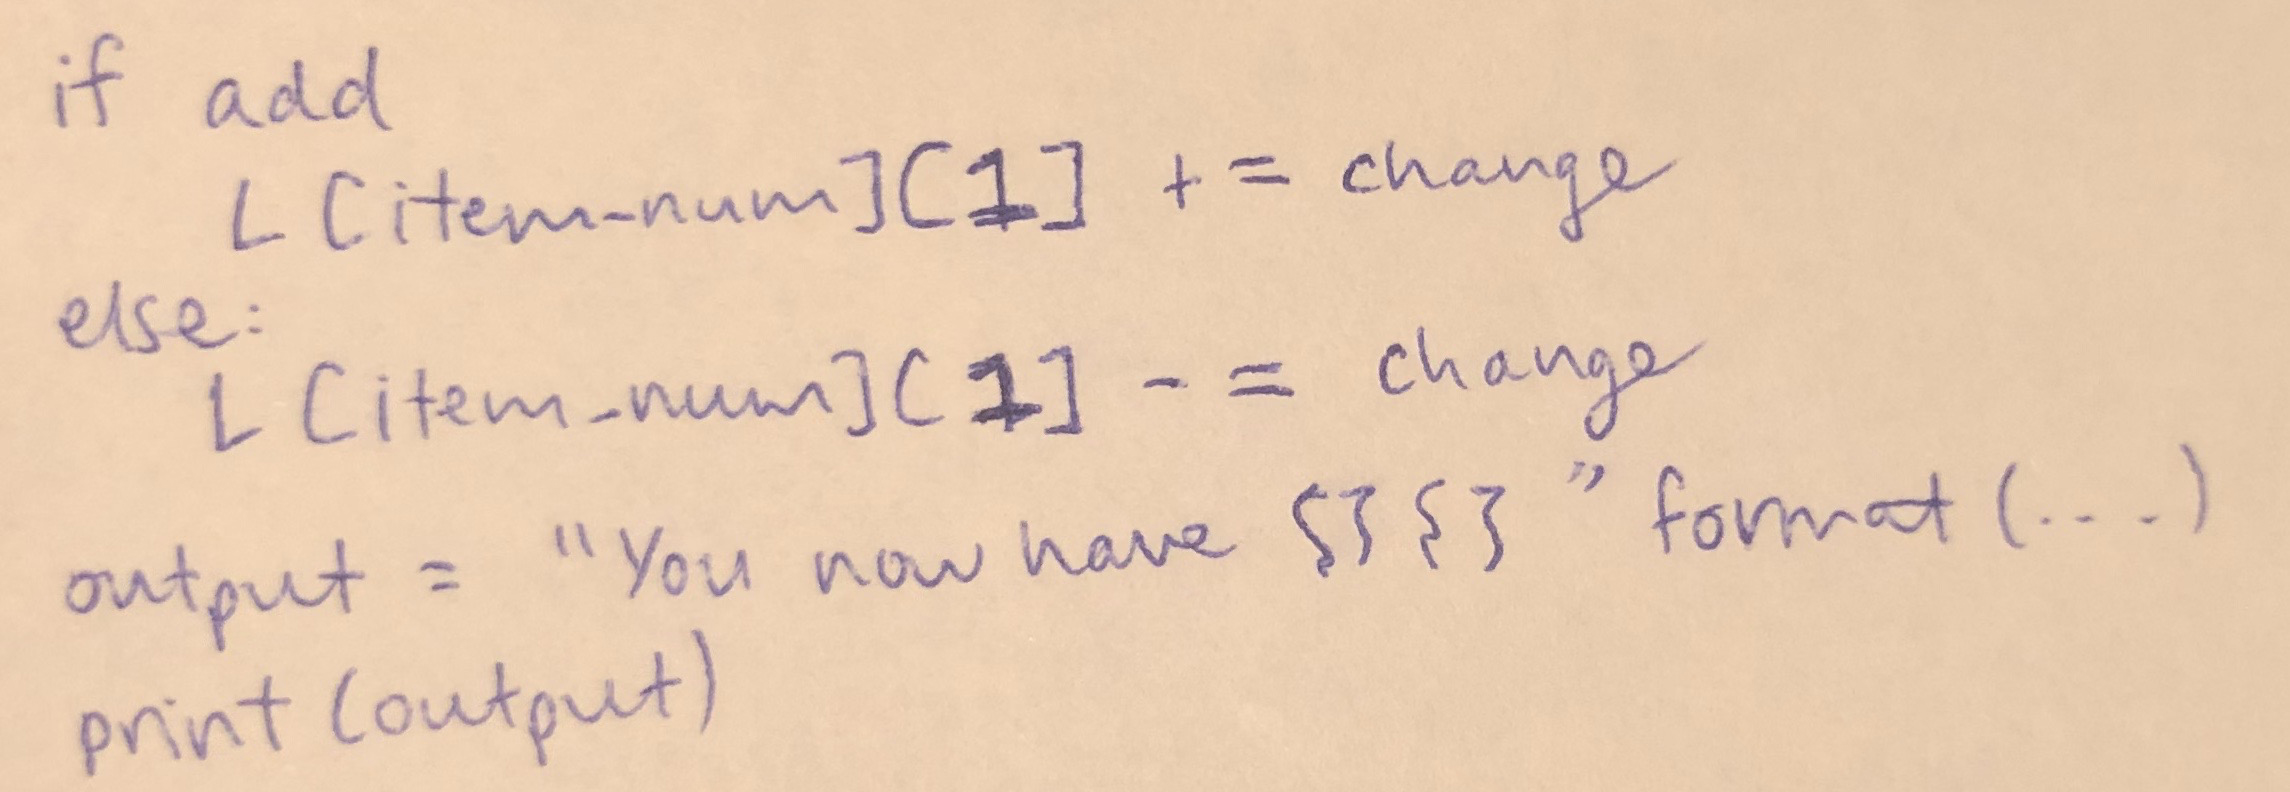 if add
L[item_num][1] += change
else:
L[item_num][1] -= change
output = "You now have {}{}" format(...)
print(output)